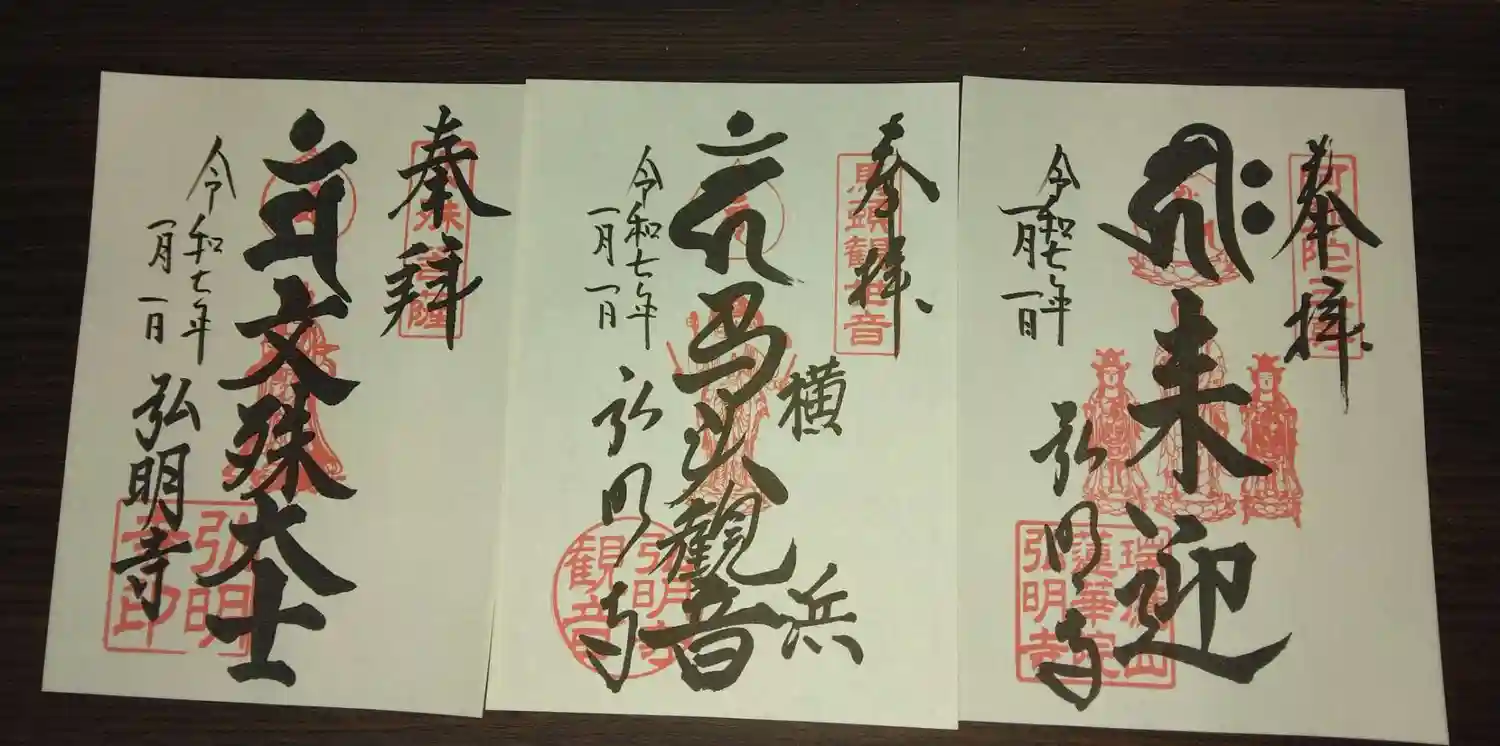 奉拝
文殊大士
令和七年
一月一日
弘明寺
弘明
寺印
奉拝
馬頭観世音
横浜
馬頭観音
令和七年
一月一日
弘明寺
弘明寺
観音
奉拝
来迎
令和七年
一月一日
弘明寺
瑞応山
蓮華院
弘明寺